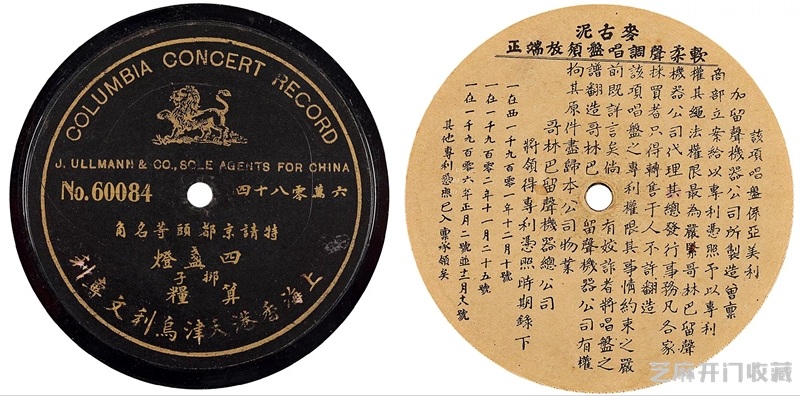 COLUMBIA CONCERT RECORD
J. ULLMANN & CO., SOLE AGENTS FOR CHINA
No. 60084 六萬零八十四
特請京都頭等名角
四盞燈
梆子
算糧
上海香港天津烏利文專利
麥古泥
軟柔聲調唱盤須放端正
該項唱盤係亞美利
加留聲機器公司所製造曾稟
商部立案給以專利憑照予以專利
權其繩法權限最為嚴緊哥林巴留聲
機器公司代理其總發行事務凡各家
採買者只得轉售于人不許翻造
該項唱盤之專利權限其事情約束之嚴
前既詳言矣倘有姣詐者將唱盤之
譜翻造哥林巴留聲機器公司有權
拘其原件盡歸本公司物業
哥林巴留聲機器總公司
將領得專利憑照時期錄下
一在西一千九百零一年十二月十號
一在一千九百零二年十一月二十五號
一在一千九百零六年正月二號並十一月號
其他專利憑照已入稟求領矣
芝麻开门收藏